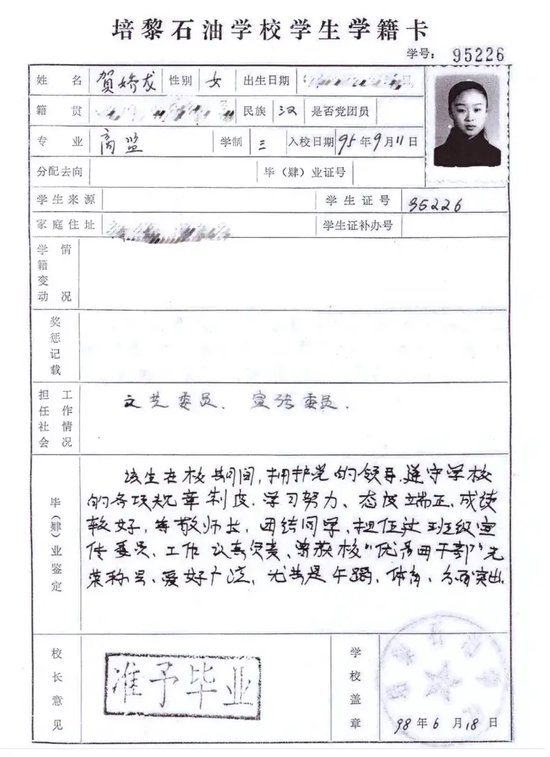 培黎石油学校学生学籍卡
学号: 95226
姓名 贺娇龙 性别 女 出生日期
籍贯 民族 汉 是否党团员
专业 商监 学制 三 入校日期 95年9月11日
分配去向 毕(肄)业证号
学生来源 学生证号 95226
家庭住址 学生证补办号
学籍变动情况
奖惩记载
担任社会工作情况 文艺委员、宣传委员.
毕(肄)业鉴定
该生在校期间,拥护党的领导,遵守学校
的各项规章制度.学习努力、态度端正,成绩
较好,尊敬师长,团结同学,担任过班级宣
传委员,工作认真负责,曾获校"优秀团干部"光
荣称号,爱好广泛,尤其是午蹈,体育,方面突出
校长意见 准予毕业 学校盖章 98年6月18日